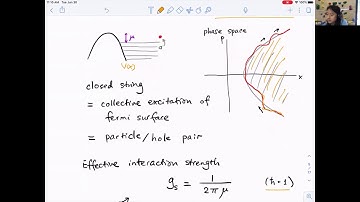 11:16 AM Tue Jun 30
μ
a†
V(x)
phase space
p
x
closed string
= collective excitation of
fermi surface
= particle/hole pair
Effective interaction strength
g_s = 1 / 2πμ
(ħ=1)